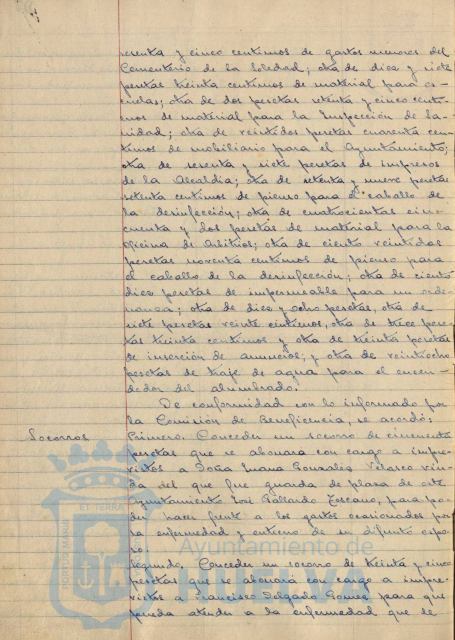 sesenta y cinco centimos de gastos menores del
Cementerio de la Soledad; otra de diez y siete
pesetas treinta centimos de material para es-
cuelas; otra de dos pesetas setenta y cinco centi-
mos de material para la Inspección de Sa-
nidad; otra de veintidos pesetas cuarenta cen-
timos de mobiliario para el Ayuntamiento;
otra de sesenta y siete pesetas de impresos
de la Alcaldia; otra de setenta y nueve pesetas
setenta centimos de pienso para el caballo de
la desinfección; otra de cuatrocientas cin-
cuenta y dos pesetas de material para la
oficina de Arbitrios; otra de ciento veintidos
pesetas noventa centimos de pienso para
el caballo de la desinfección; otra de ciento
diez pesetas de impermeable para un orde-
nanza; otra de diez y ocho pesetas, otra de
siete pesetas veinte centimos, otra de trece pese-
tas treinta centimos y otra de treinta pesetas
de inserción de anuncios; y otra de veintiocho
pesetas de traje de agua para el encen-
dedor del alumbrado.
De conformidad con lo informado por
la Comisión de Beneficencia, se acordó:
Socorros
Primero. Conceder un socorro de cincuenta
pesetas que se abonará con cargo a impre-
vistos a Doña Juana Gonzalez Velasco viu-
da del que fue guarda de plaza de este
Ayuntamiento José Gallardo Toscano, para po-
der hacer frente a los gastos ocasionados por
la enfermedad y entierro de su difunto espo-
so.
Segundo. Conceder un socorro de treinta y cinco
pesetas que se abonará con cargo a impre-
vistos a Francisco Delgado Gomez para que
pueda atender a la enfermedad que se
Ayuntamiento de
HUELVA